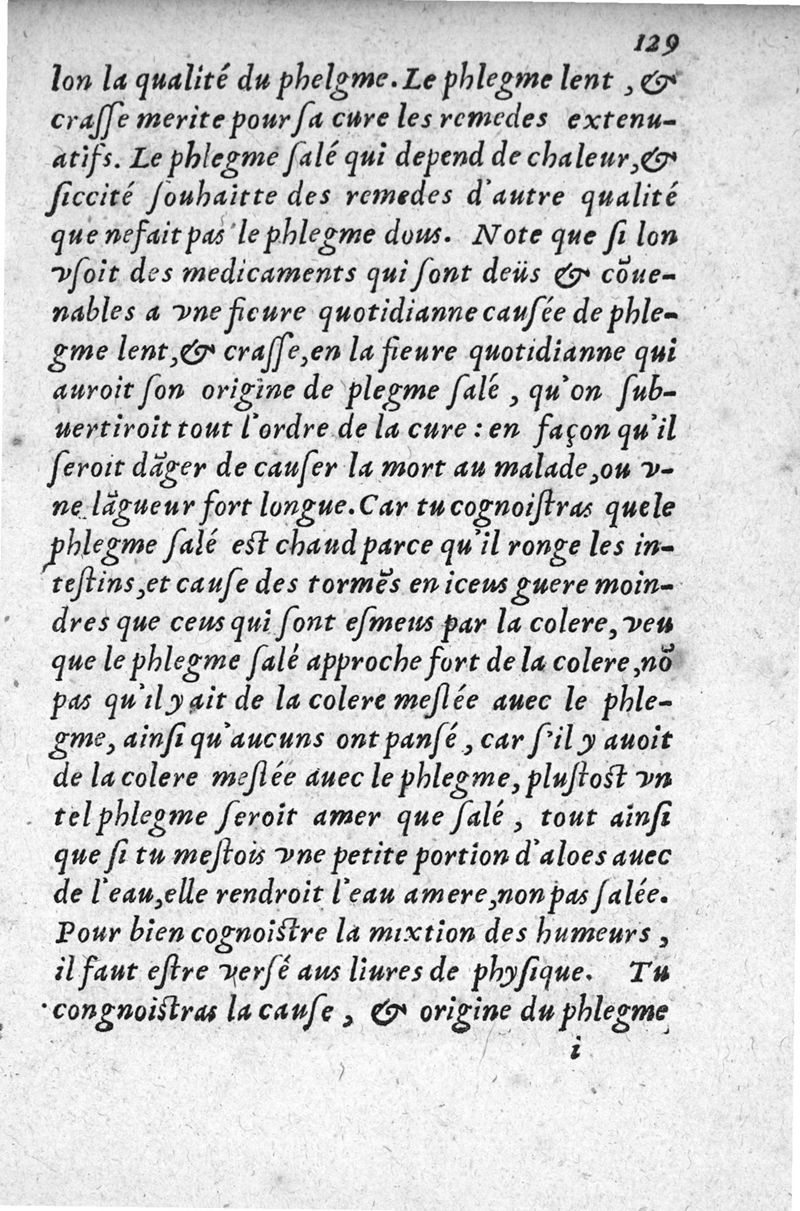 129
lon la qualité du phelgme. Le phlegme lent, &
craſſe merite pour ſa cure les remedes extenu-
atifs. Le phlegme ſalé qui depend de chaleur, &
ſiccité ſouhaitte des remedes d'autre qualité
que ne fait pas le phlegme dous. Note que ſi lon
vſoit des medicaments qui ſont deüs & cõue-
nables a vne fieure quotidianne cauſée de phle-
gme lent, & craſſe, en la fieure quotidianne qui
auroit ſon origine de plegme ſalé, qu'on ſub-
uertiroit tout l'ordre de la cure : en façon qu'il
ſeroit dãger de cauſer la mort au malade, ou v-
ne lãgueur fort longue. Car tu cognoiſtras que le
phlegme ſalé eſt chaud parce qu'il ronge les in-
teſtins, et cauſe des tormẽs en iceus guere moin-
dres que ceus qui ſont eſmeus par la colere, veu
que le phlegme ſalé approche fort de la colere, nõ
pas qu'il y ait de la colere meſlée auec le phle-
gme, ainſi qu'aucuns ont panſé, car ſ'il y auoit
de la colere meſlée auec le phlegme, pluſtoſt vn
tel phlegme ſeroit amer que ſalé, tout ainſi
que ſi tu meſtois vne petite portion d'aloes auec
de l'eau, elle rendroit l'eau amere, non pas ſalée.
Pour bien cognoiſtre la mixtion des humeurs,
il faut eſtre verſé aus liures de phyſique. Tu
congnoiſtras la cauſe, & origine du phlegme
i